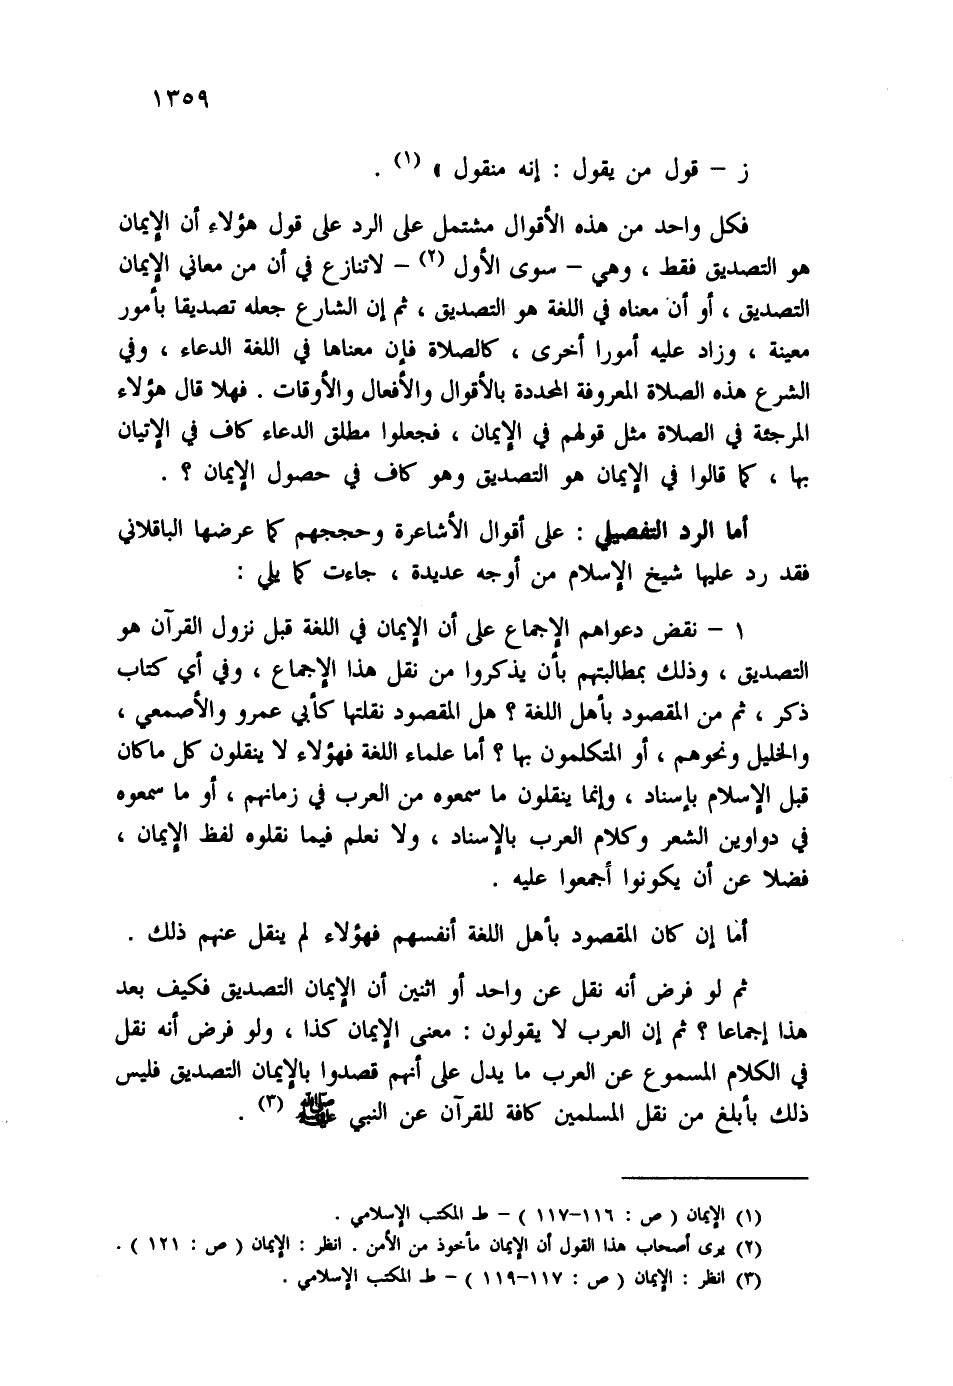 ١٣٥٩
ز – قول من يقول : إنه منقول » (١) .
فكل واحد من هذه الأقوال مشتمل على الرد على قول هؤلاء أن الإيمان
هو التصديق فقط ، وهي – سوى الأول (٢) – لاتنازع في أن من معاني الإيمان
التصديق ، أو أن معناه في اللغة هو التصديق ، ثم إن الشارع جعله تصديقا بأمور
معينة ، وزاد عليه أمورا أخرى ، كالصلاة فإن معناها في اللغة الدعاء ، وفي
الشرع هذه الصلاة المعروفة المحددة بالأقوال والأفعال والأوقات . فهلا قال هؤلاء
المرجئة في الصلاة مثل قولهم في الإيمان ، فجعلوا مطلق الدعاء كاف في الإتيان
بها ، كما قالوا في الإيمان هو التصديق وهو كاف في حصول الإيمان ؟ .
أما الرد التفصيلي : على أقوال الأشاعرة وحججهم كما عرضها الباقلاني
فقد رد عليها شيخ الإسلام من أوجه عديدة ، جاءت كما يلي :
١ – نقض دعواهم الإجماع على أن الإيمان في اللغة قبل نزول القرآن هو
التصديق ، وذلك بمطالبتهم بأن يذكروا من نقل هذا الإجماع ، وفي أي كتاب
ذكر ، ثم من المقصود بأهل اللغة ؟ هل المقصود نقلتها كأبي عمرو والأصمعي ،
والخليل ونحوهم ، أو المتكلمون بها ؟ أما علماء اللغة فهؤلاء لا ينقلون كل ماكان
قبل الإسلام بإسناد ، وإنما ينقلون ما سمعوه من العرب في زمانهم ، أو ما سمعوه
في دواوين الشعر وكلام العرب بالإسناد ، ولا نعلم فيما نقلوه لفظ الإيمان ،
فضلا عن أن يكونوا أجمعوا عليه .
أما إن كان المقصود بأهل اللغة أنفسهم فهؤلاء لم ينقل عنهم ذلك .
ثم لو فرض أنه نقل عن واحد أو اثنين أن الإيمان التصديق فكيف بعد
هذا إجماعا ؟ ثم إن العرب لا يقولون : معنى الإيمان كذا ، ولو فرض أنه نقل
في الكلام المسموع عن العرب ما يدل على أنهم قصدوا بالإيمان التصديق فليس
ذلك بأبلغ من نقل المسلمين كافة للقرآن عن النبي ﷺ (٣) .
(١) الإيمان ( ص : ١١٦–١١٧ ) – ط المكتب الإسلامي .
(٢) يرى أصحاب هذا القول أن الإيمان مأخوذ من الأمن . انظر : الإيمان ( ص : ١٢١ ) .
(٣) انظر : الإيمان ( ص : ١١٧–١١٩ ) – ط المكتب الإسلامي .